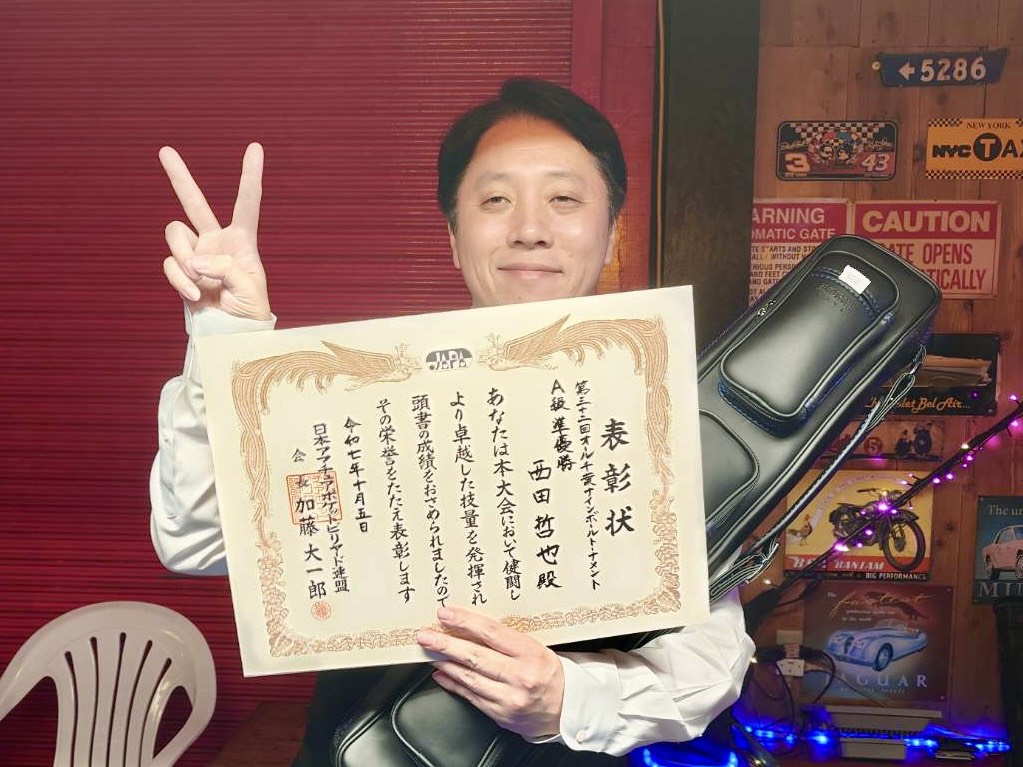 JAPA
表彰状
第三十二回オール千葉ナインボールトーナメント
A級 準優勝
西田哲也殿
あなたは本大会において健闘し
より卓越した技量を発揮され
頭書の成績をおさめられましたので
その栄誉をたたえ表彰します
令和七年十月五日
日本アマチュアポケットビリヤード連盟
会長 加藤大一郎
5286
3
43
NEW YORK
NYC TAX
ARNING
OMATIC GATE
CAUTION
ATE OPENS
TICALLY
let Bel Air...
BANTAM
BIG PERFORMANCE
The un
MI
in the world
JAGUAR